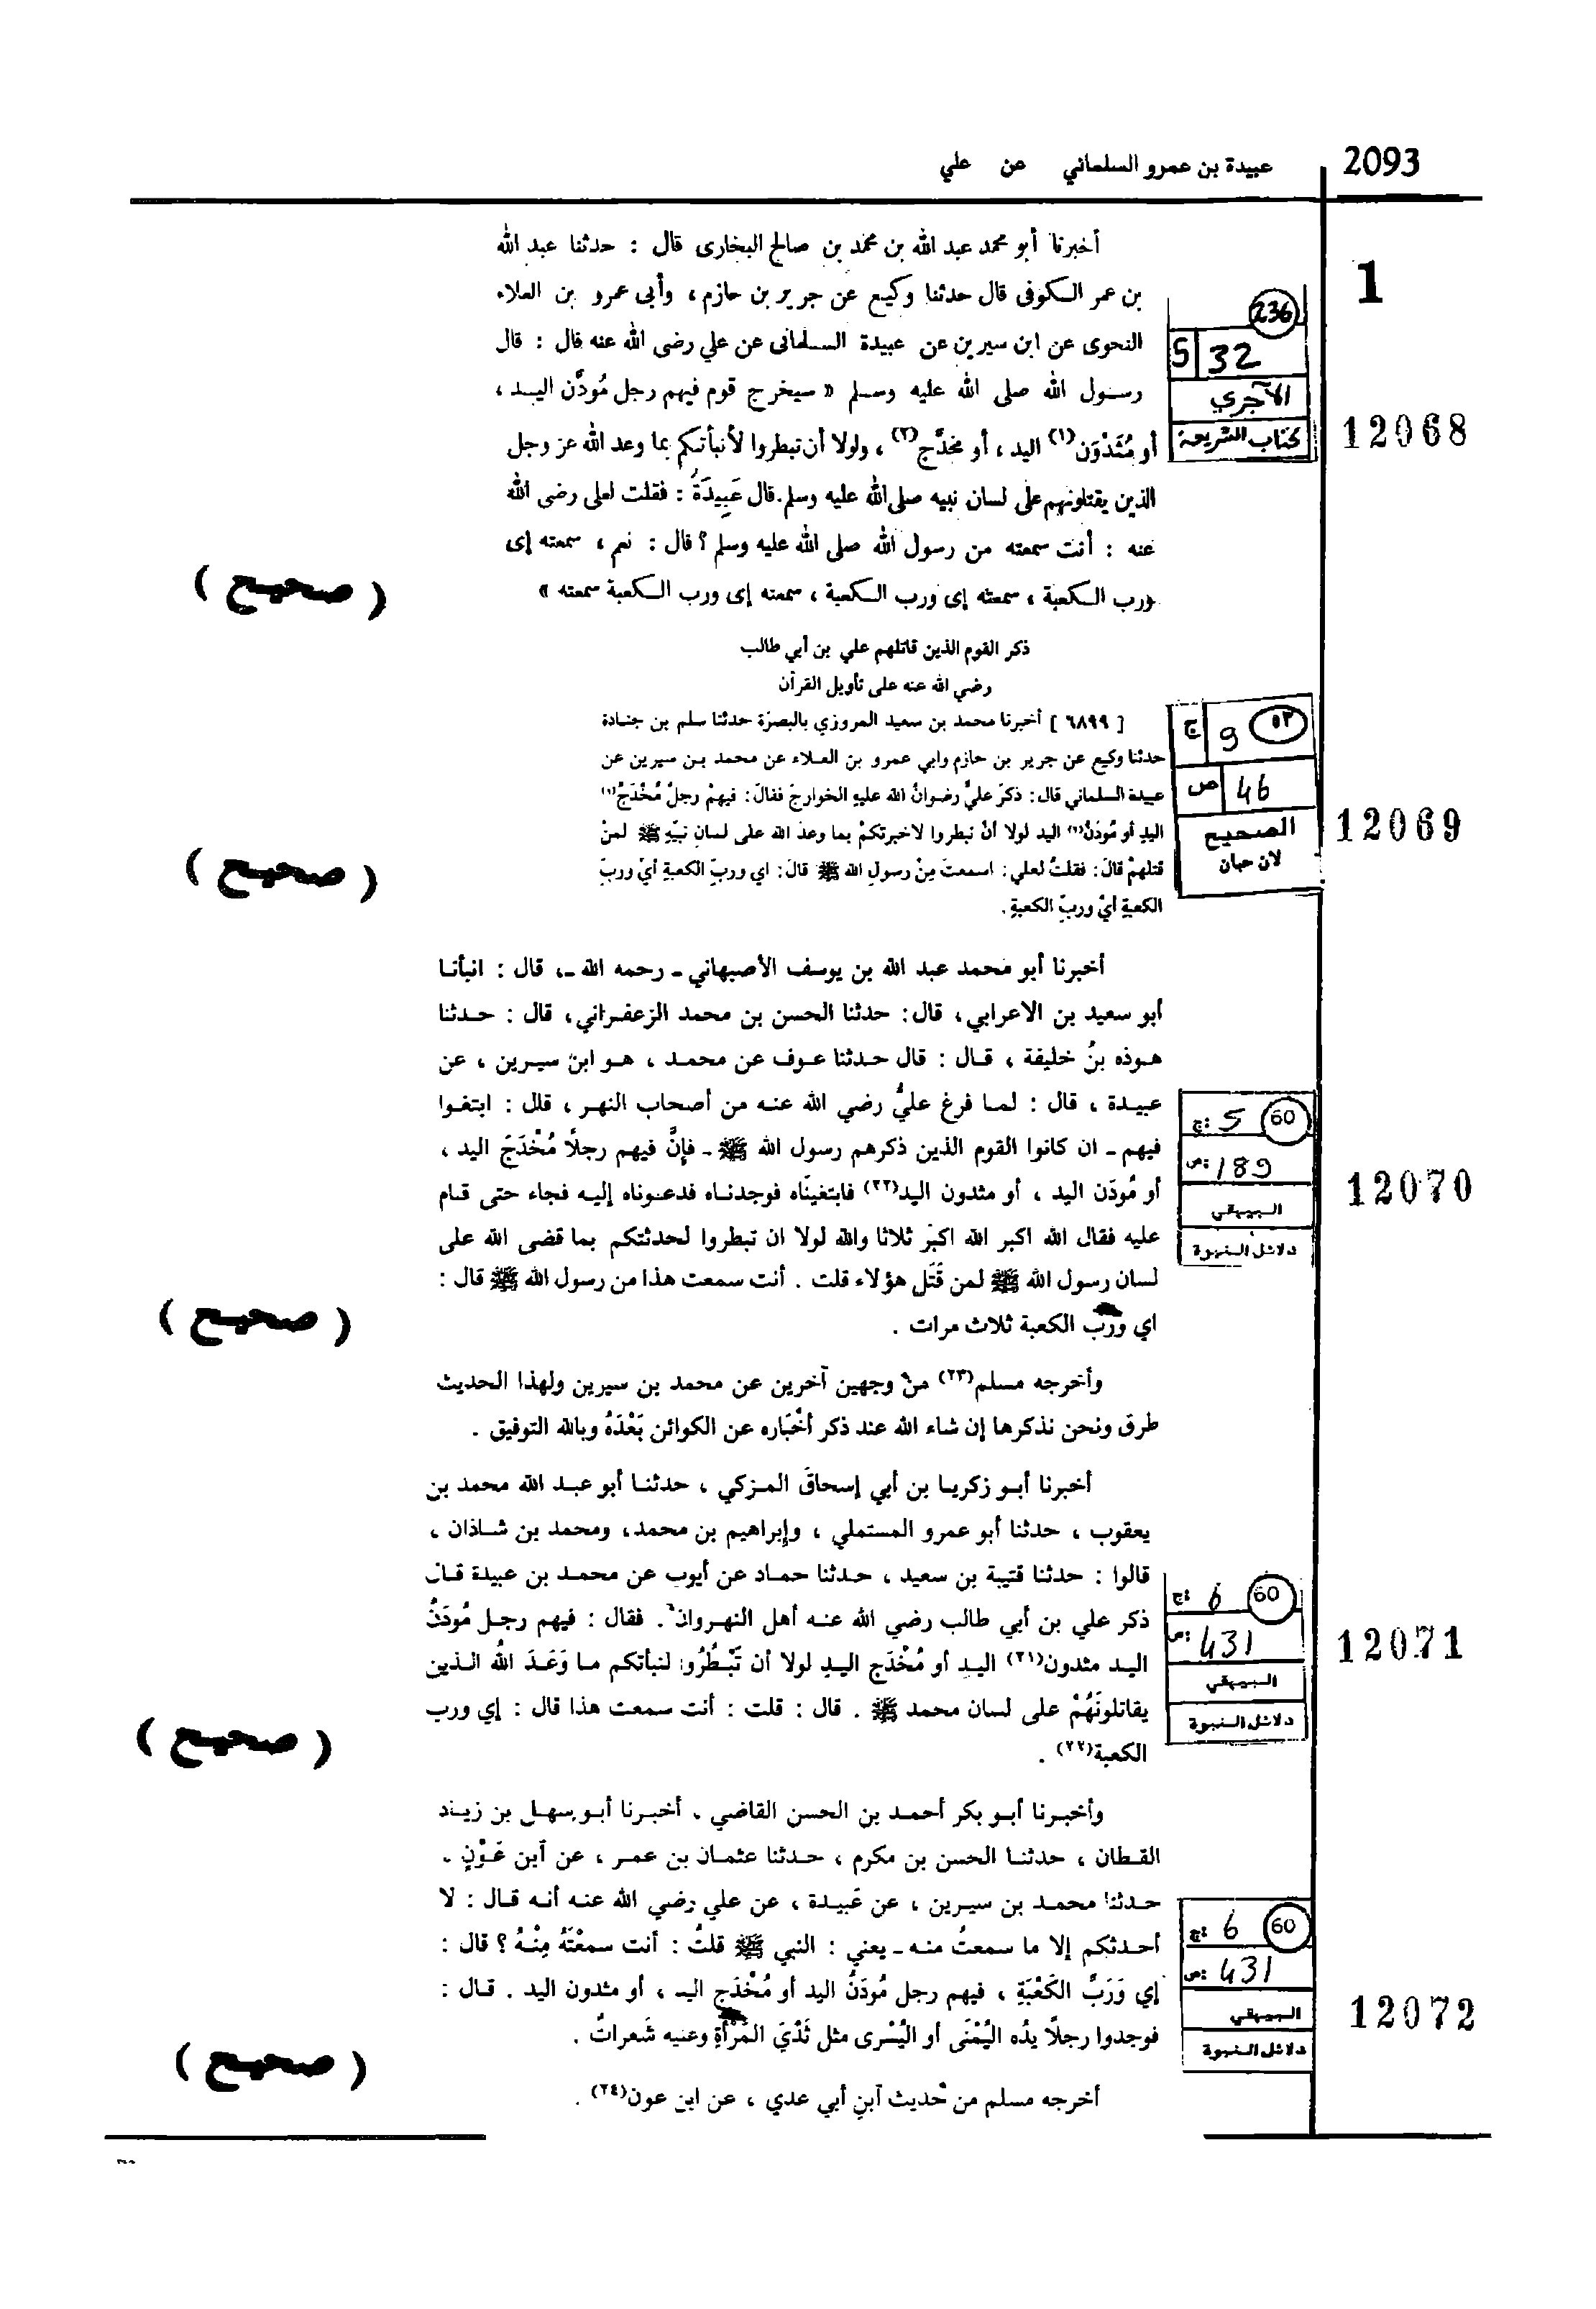 2093
عبيدة بن عمرو السلماني عن علي
1
أخبرنا أبو محمد عبد الله بن محمد بن صالح البخارى قال : حدثنا عبد الله
بن عمر الكوفى قال حدثنا وكيع عن جرير بن حازم ، وأبى عمرو بن العلاء
النحوى عن ابن سيرين عن عبيدة السلمانى عن علي رضى الله عنه قال : قال
رسول الله صلى الله عليه وسلم « سيخرج قوم فيهم رجل مُودَن اليد ،
أو مُثَدْوَن(١) اليد ، أو مخدَّج(٢) ، ولولا أن تبطروا لأنبأتكم بما وعد الله عز وجل
الذين يقتلونهم على لسان نبيه صلى الله عليه وسلم. قال عَبِيدَةُ : فقلت لعلى رضى الله
عنه : أنت سمعته من رسول الله صلى الله عليه وسلم ؟ قال : نعم ، سمعته إى
ورب الكعبة ، سمعته إى ورب الكعبة ، سمعته إى ورب الكعبة سمعته »
( صحيح )
236
5 32
الآجري
كتاب الشريعة
12068
ذكر القوم الذين قاتلهم علي بن أبي طالب
رضي الله عنه على تأويل القرآن
[ ٦٨٩٩ ] أخبرنا محمد بن سعيد المروزي بالبصرة حدثنا سلم بن جنادة
حدثنا وكيع عن جرير بن حازم وابي عمرو بن العلاء عن محمد بن سيرين عن
عبيدة السلماني قال: ذكرَ عليٌّ رضوانُ الله عليهِ الخوارجَ فقالَ: فيهمْ رجلٌ مُخْدَجُ(١)
اليدِ أو مُودَنُ(١) اليد لولا أنْ تبطروا لاخبرتكمْ بما وعدَ الله على لسانِ نبيّهِ ﷺ لمنْ
قتلهمْ قالَ: فقلتُ لعلي: اسمعتَ مِنْ رسولِ الله ﷺ قالَ: اي وربّ الكعبةِ أيْ وربّ
الكعبةِ أيْ وربّ الكعبةِ.
( صحيح )
٥٣
ج 9
ص 46
الصحيح
لابن حبان
12069
أخبرنا أبو محمد عبد الله بن يوسف الأصبهاني ـ رحمه الله ـ، قال : انبأنا
أبو سعيد بن الاعرابي، قال: حدثنا الحسن بن محمد الزعفراني، قال : حدثنا
هوذه بنُ خليفة ، قال : قال حدثنا عوف عن محمد ، هو ابن سيرين ، عن
عبيدة ، قال : لما فرغ عليُّ رضي الله عنه من أصحاب النهر ، قال : ابتغوا
فيهم ـ ان كانوا القوم الذين ذكرهم رسول الله ﷺ ـ فإنَّ فيهم رجلًا مُخْدَجَ اليد ،
أو مُودَن اليد ، أو مثدون اليد(٢٢) فابتغيناه فوجدناه فدعوناه إليه فجاء حتى قام
عليه فقال الله اكبر الله اكبر ثلاثا والله لولا ان تبطروا لحدثتكم بما قضى الله على
لسان رسول الله ﷺ لمن قَتَل هؤلاء قلت . أنت سمعت هذا من رسول الله ﷺ قال :
اي وربّ الكعبة ثلاث مرات .
( صحيح )
60
ج: 5
ص: 189
البيهقي
دلائل النبوة
12070
وأخرجه مسلم(٢٣) من وجهين آخرين عن محمد بن سيرين ولهذا الحديث
طرق ونحن نذكرها إن شاء الله عند ذكر أخْبَاره عن الكوائن بَعْدَهُ وبالله التوفيق .
أخبرنا أبو زكريا بن أبي إسحاق المزكي ، حدثنا أبو عبد الله محمد بن
يعقوب ، حدثنا أبو عمرو المستملي ، وإبراهيم بن محمد، ومحمد بن شاذان ،
قالوا : حدثنا قتيبة بن سعيد ، حدثنا حماد عن أيوب عن محمد بن عبيدة قال
ذكر علي بن أبي طالب رضي الله عنه أهل النهروان . فقال : فيهم رجل مُودَنُ
اليد مثدون(٢١) اليد أو مُخْدَج اليد لولا أن تَبْطُرُوا لنبأتكم ما وَعَدَ اللهُ الذين
يقاتلونَهُمْ على لسان محمد ﷺ . قال : قلت : أنت سمعت هذا قال : إي ورب
الكعبة(٢٢) .
( صحيح )
60
ج: 6
ص: 431
البيهقي
دلائل النبوة
12071
وأخبرنا أبو بكر أحمد بن الحسن القاضي ، أخبرنا أبو سهل بن زياد
القطان ، حدثنا الحسن بن مكرم ، حدثنا عثمان بن عمر ، عن ابن عَوْنٍ ،
حدثنا محمد بن سيرين ، عن عَبيدة ، عن علي رضي الله عنه أنه قال : لا
أحدثكم إلا ما سمعتُ منه ـ يعني : النبي ﷺ قلتُ : أنت سمعْتَهُ مِنْهُ ؟ قال :
إي وَرَبِّ الكَعْبَةِ ، فيهم رجل مُودَنُ اليد أو مُخْدَج اليد ، أو مثدون اليد . قال :
فوجدوا رجلًا يدُه اليُمْنَى أو اليُسْرى مثل ثَدْيَ المَرْأةِ وعليه شَعراتٌ .
( صحيح )
60
ج: 6
ص: 431
البيهقي
دلائل النبوة
12072
أخرجه مسلم من حديث ابن أبي عدي ، عن ابن عون(٢٤) .